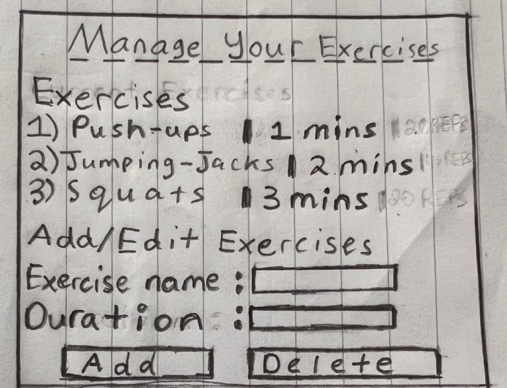 Manage Your Exercises
Exercises
1) Push-ups | 1 mins | 20 REPS
2) Jumping-Jacks | 2 mins | REPS
3) Squats | 3 mins | 20 REPS
Add/Edit Exercises
Exercise name :
Duration :
Add Delete